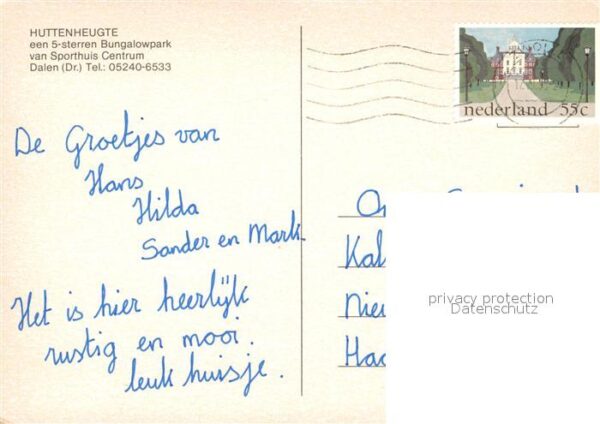 HUTTENHEUGTE
een 5-sterren Bungalowpark
van Sporthuis Centrum
Dalen (Dr.) Tel.: 05240-6533
nederland 55c
De Groetjes van
Hans
Hilda
Sander en Mark.
Het is hier heerlijk
rustig en mooi.
leuk huisje.
Kal
Nieu
Haa
privacy protection
Datenschutz